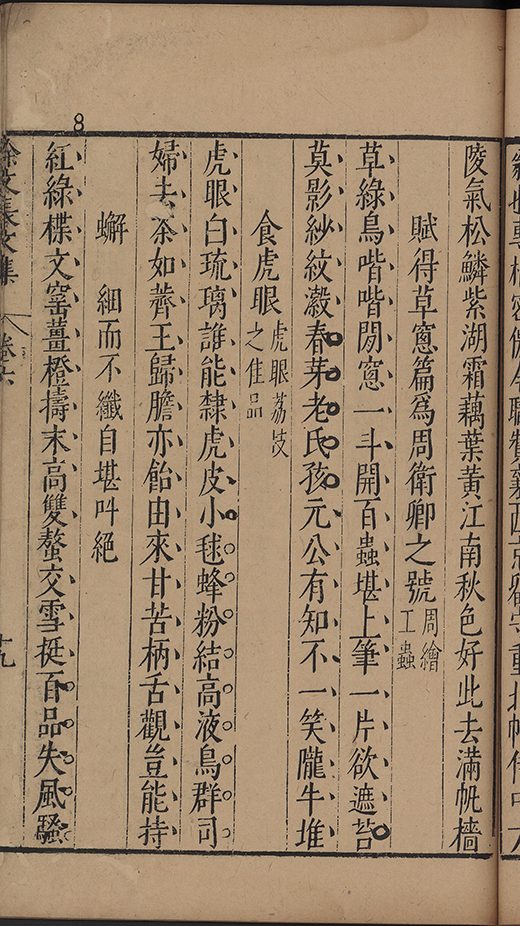 陵氣松鱗紫湖霜藕葉黃江南秋色好此去滿帆檣
賦得草窻篇爲周衛卿之號周繪工蟲
草綠鳥喈喈閉窻一斗開百蟲堪上筆一片欲遮苔
莫影紗紋瀔春芽老氏孩元公有知不一笑隴牛堆
食虎眼虎眼荔芰之佳品
虎眼白琉璃誰能隸虎皮小毬蜂粉結高液鳥群司
婦去茶如薺王歸膽亦飴由來甘苦柄舌觀豈能持
蠏 細而不纖自堪呌絕
紅綠楪文窰薑橙擣末高雙螯交雪挺百品失風騷
徐文長文集
卷六
十九
8